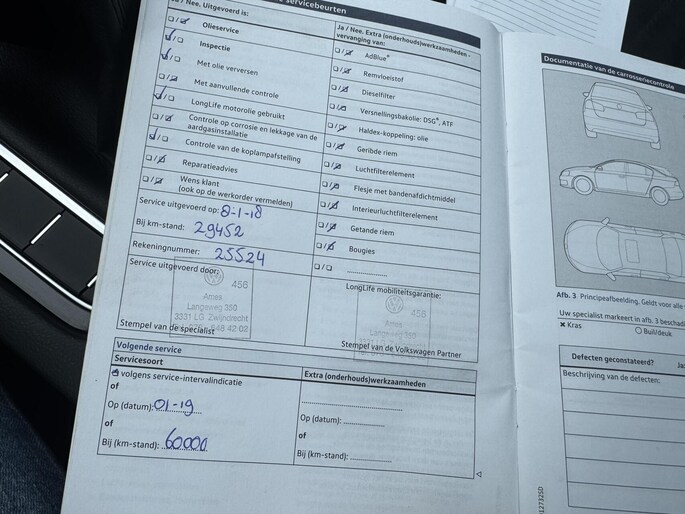 servicebeurten
Ja / Nee. Uitgevoerd is:
Olieservice
Inspectie
Met olie verversen
Met aanvullende controle
LongLife motorolie gebruikt
Controle op corrosie en lekkage van de
aardgasinstallatie
Controle van de koplampafstelling
Reparatieadvies
Wens klant
(ook op de werkorder vermelden)
Service uitgevoerd op: 8-1-18
Bij km-stand: 29452
Rekeningnummer: 25524
Service uitgevoerd door:
456
Ames
Langeweg 350
3331 LG Zwijndrecht
648 42 02
Stempel van de specialist
Ja / Nee. Extra (onderhouds)werkzaamheden -
vervanging van:
AdBlue®
Remvloeistof
Dieselfilter
Versnellingsbakolie: DSG®, ATF
Haldex-koppeling: olie
Geribde riem
Luchtfilterelement
Flesje met bandenafdichtmiddel
Interieurluchtfilterelement
Getande riem
Bougies
LongLife mobiliteitsgarantie:
456
Ames
Stempel van de Volkswagen Partner
Volgende service
Servicesoort
volgens service-intervalindicatie
of
Op (datum): 01-19
of
Bij (km-stand): 60000
Extra (onderhouds)werkzaamheden
Op (datum):
of
Bij (km-stand):
Documentatie van de carrosseriecontrole
Afb. 3 Principeafbeelding. Geldt voor alle
Uw specialist markeert in afb. 3 beschadi
x Kras
O Buil/deuk
Defecten geconstateerd?
Ja
Beschrijving van de defecten: